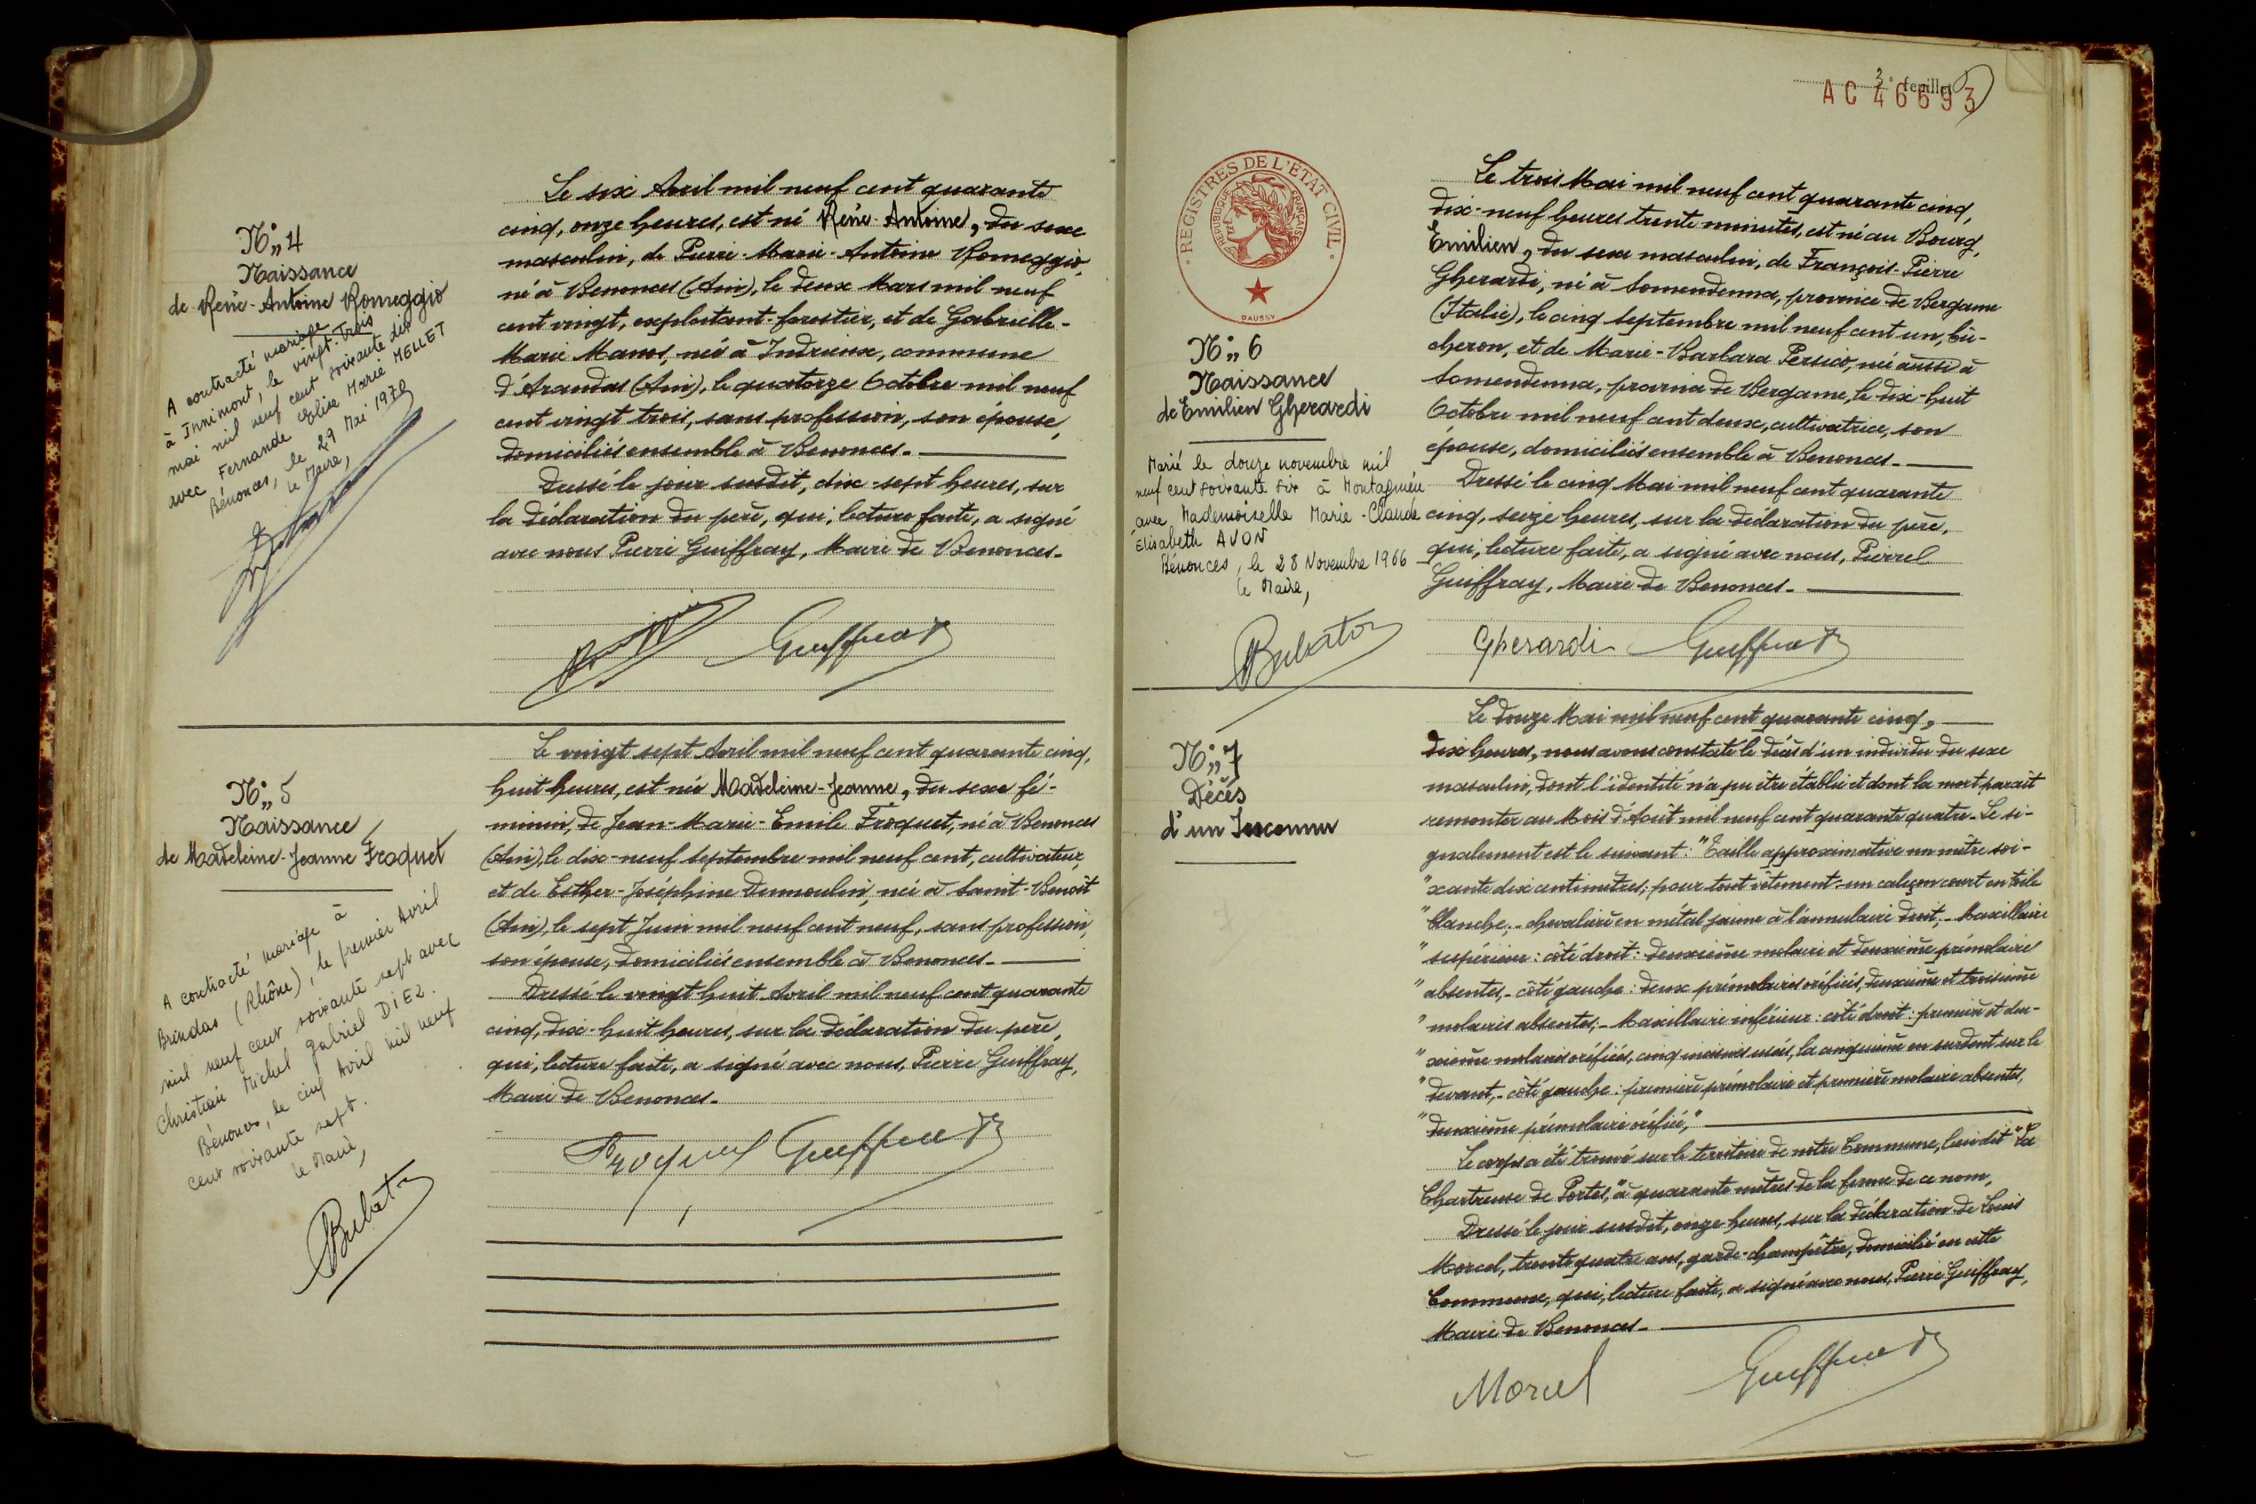 N° 4
Naissance
de René-Antoine Romeggio
A contracté mariage
à Innimont, le vingt-trois
mai mil neuf cent soixante dix
avec Fernande Eglise Marie MELLET
Bénonces, le 29 Mai 1970
le Maire,
Le six Avril mil neuf cent quarante
cinq, onze heures, est né René-Antoine, du sexe
masculin, de Pierre-Marie-Antoine Romeggio,
né à Benonces (Ain), le deux Mars mil neuf
cent vingt, exploitant-forestier, et de Gabrielle-
Marie Manos, née à Indrieux, commune
d'Arandas (Ain), le quatorze Octobre mil neuf
cent vingt trois, sans profession, son épouse,
domiciliés ensemble à Benonces.
Dressé le jour susdit, dix-sept heures, sur
la déclaration du père, qui, lecture faite, a signé
avec nous Pierre Guiffray, Maire de Benonces.
Guiffray
N° 5
Naissance
de Madeleine-Jeanne Froquet
A contracté mariage à
Brindas (Rhône), le premier Avril
mil neuf cent soixante sept avec
Christian Michel Gabriel DIEZ.
Bénonces, le cinq Avril mil neuf
cent soixante sept.
le Maire,
Le vingt sept Avril mil neuf cent quarante cinq,
huit heures, est née Madeleine-Jeanne, du sexe fé-
minin, de Jean-Marie-Emile Froquet, né à Benonces
(Ain), le dix-neuf septembre mil neuf cent, cultivateur,
et de Esther-Joséphine Dumoulin, née à Saint-Benoît
(Ain), le sept Juin mil neuf cent neuf, sans profession,
son épouse, domiciliés ensemble à Benonces.
Dressé le vingt huit Avril mil neuf cent quarante
cinq, dix-huit heures, sur la déclaration du père,
qui, lecture faite, a signé avec nous, Pierre Guiffray,
Maire de Benonces.
Froquet Guiffray
3e feuillet
AC 46693
REGISTRES DE L'ÉTAT CIVIL
RÉPUBLIQUE FRANÇAISE
DAUSSY
N° 6
Naissance
de Emilien Gherardi
Marié le douze novembre mil
neuf cent soixante six à Montagnieu
avec Mademoiselle Marie-Claude
Elisabeth AVON
Bénonces, le 28 Novembre 1966
le Maire,
Le trois Mai mil neuf cent quarante cinq,
dix-neuf heures trente minutes, est né au Bourg,
Emilien, du sexe masculin, de François-Pierre
Gherardi, né à Somendenna, province de Bergame
(Italie), le cinq septembre mil neuf cent un, bû-
cheron, et de Marie-Barbara Persico, née aussi à
Somendenna, province de Bergame, le dix-huit
Octobre mil neuf cent deux, cultivatrice, son
épouse, domiciliés ensemble à Benonces.
Dressé le cinq Mai mil neuf cent quarante
cinq, seize heures, sur la déclaration du père,
qui, lecture faite, a signé avec nous, Pierre
Guiffray, Maire de Benonces.
Gherardi Guiffray
N° 7
Décès
d'un Inconnu
Le douze Mai mil neuf cent quarante cinq,
dix heures, nous avons constaté le décès d'un individu du sexe
masculin, dont l'identité n'a pu être établie et dont la mort paraît
remonter au Mois d'Août mil neuf cent quarante quatre. Le si-
gnalement est le suivant : "Taille approximative un mètre soi-
"xante dix centimètres; pour tout vêtement : un caleçon court en toile
"blanche; - chevalière en métal jaune à l'annulaire droit; - Maxillaire
"supérieur : côté droit : deuxième molaire et deuxième prémolaire
"absentes, - côté gauche : deux prémolaires aurifiées, deuxième et troisième
"molaires absentes; - Maxillaire inférieur : côté droit : première et deu-
"xième molaires aurifiées, cinq incisives usées, la cinquième en surdent sur le
"devant, - côté gauche : première prémolaire et première molaire absentes,
"deuxième prémolaire aurifiée,"
Le corps a été trouvé sur le territoire de notre Commune, lieu dit "La
Chartreuse de Portes," à quarante mètres de la ferme de ce nom,
Dressé le jour susdit, onze heures, sur la déclaration de Louis
Morcel, trente quatre ans, garde-champêtre, domicilié en cette
Commune, qui, lecture faite, a signé avec nous, Pierre Guiffray,
Maire de Benonces.
Morcel Guiffray